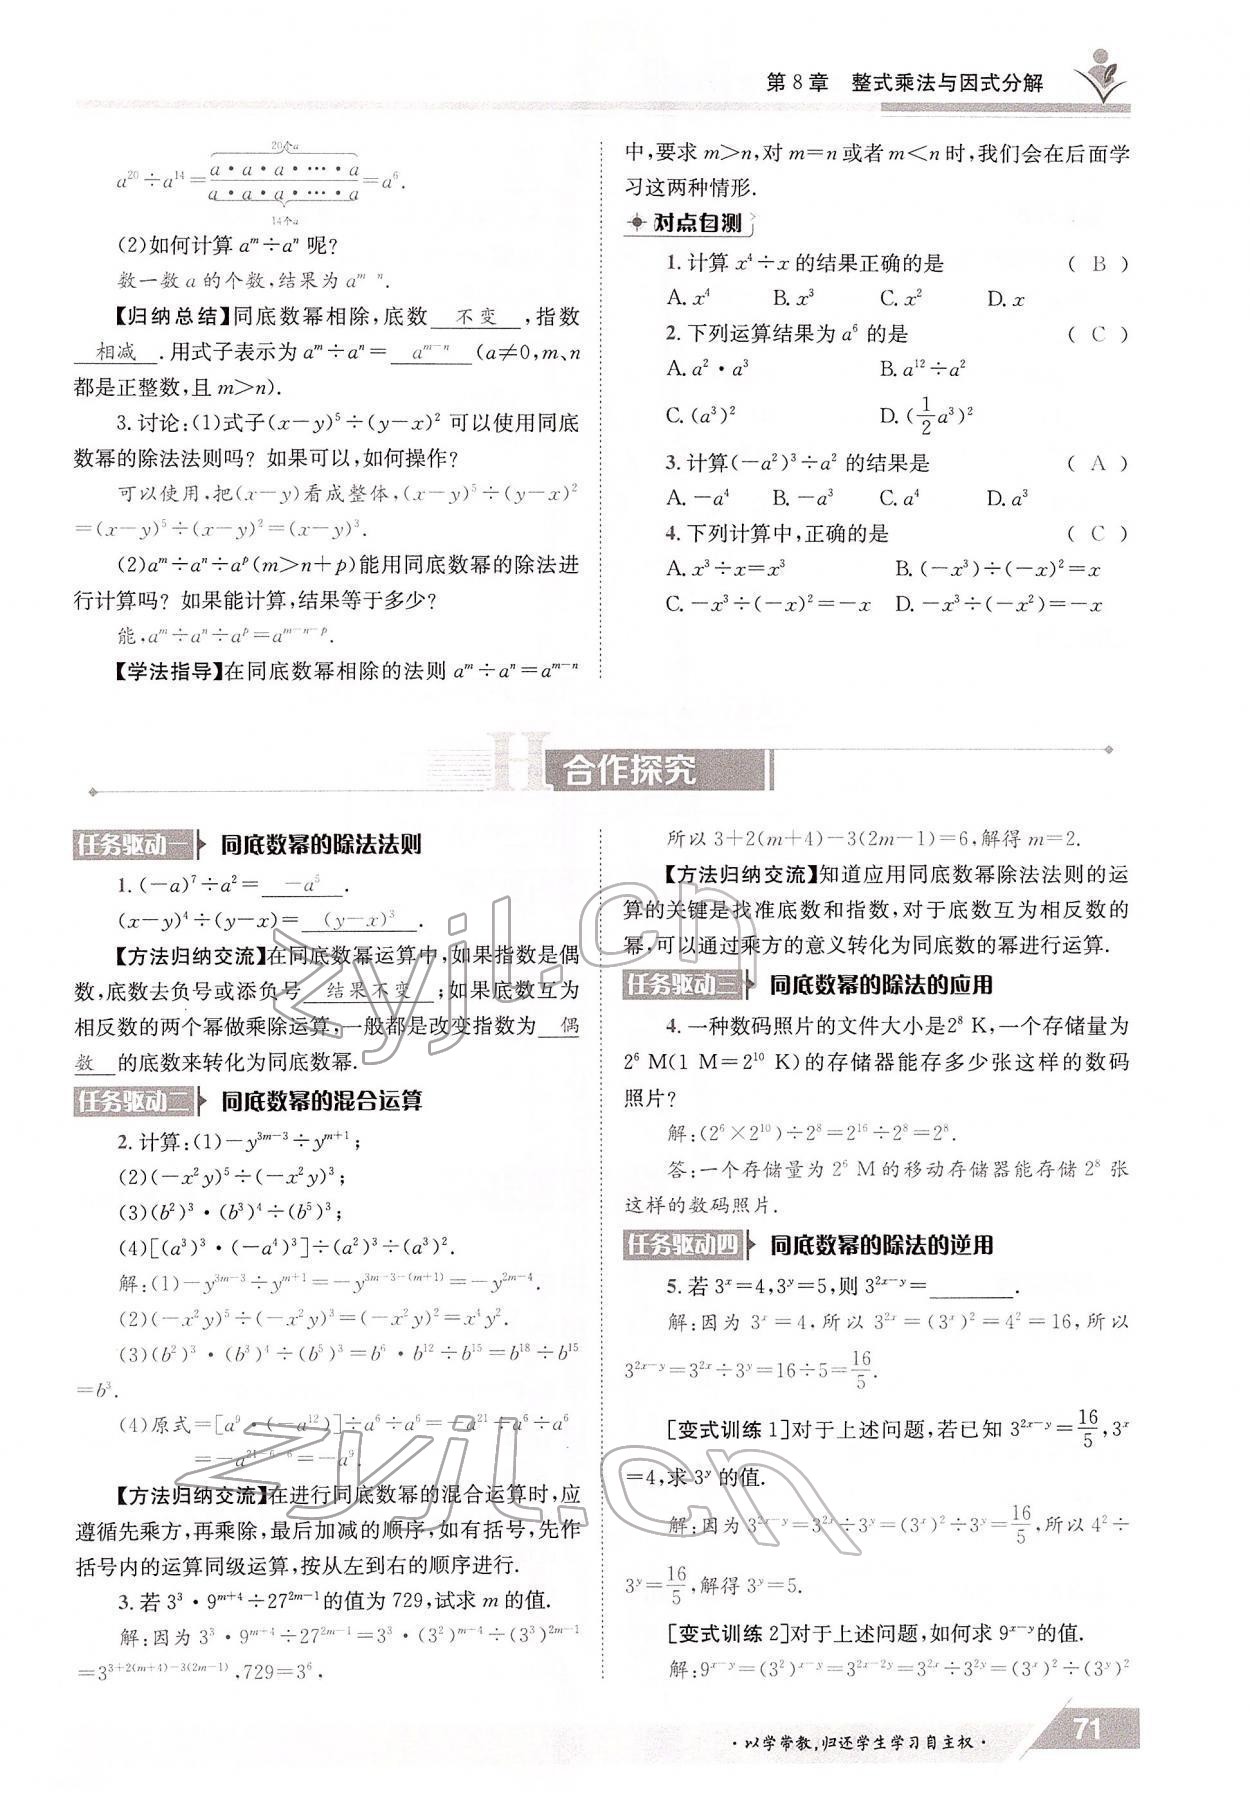 第8章 整式乘法与因式分解
20个a
a²⁰÷a¹⁴=(a·a·a·⋯·a)/(a·a·a·⋯·a)=a⁶.
14个a
(2)如何计算 aᵐ÷aⁿ 呢?
数一数 a 的个数,结果为 aᵐ ⁿ.
【归纳总结】同底数幂相除,底数 不变 ,指数
相减 .用式子表示为 aᵐ÷aⁿ= aᵐ⁻ⁿ (a≠0,m、n
都是正整数,且 m>n).
3.讨论:(1)式子(x-y)⁵÷(y-x)² 可以使用同底
数幂的除法法则吗? 如果可以,如何操作?
可以使用,把(x-y)看成整体,(x-y)⁵÷(y-x)²
=(x-y)⁵÷(x-y)²=(x-y)³.
(2)aᵐ÷aⁿ÷aᵖ(m>n+p)能用同底数幂的除法进
行计算吗? 如果能计算,结果等于多少?
能,aᵐ÷aⁿ÷aᵖ=aᵐ⁻ⁿ⁻ᵖ.
【学法指导】在同底数幂相除的法则 aᵐ÷aⁿ=aᵐ⁻ⁿ
中,要求 m>n,对 m=n 或者 m<n 时,我们会在后面学
习这两种情形.
对点自测
1.计算 x⁴÷x 的结果正确的是 ( B )
A.x⁴ B.x³ C.x² D.x
2.下列运算结果为 a⁶ 的是 ( C )
A.a²·a³ B.a¹²÷a²
C.(a³)² D.(1/2 a³)²
3.计算(-a²)³÷a² 的结果是 ( A )
A.-a⁴ B.-a³ C.a⁴ D.a³
4.下列计算中,正确的是 ( C )
A.x³÷x=x³ B.(-x³)÷(-x)²=x
C.-x³÷(-x)²=-x D.-x³÷(-x²)=-x
H 合作探究
任务驱动一 同底数幂的除法法则
1.(-a)⁷÷a²= -a⁵ .
(x-y)⁴÷(y-x)= (y-x)³ .
【方法归纳交流】在同底数幂运算中,如果指数是偶
数,底数去负号或添负号 结果不变 ;如果底数互为
相反数的两个幂做乘除运算,一般都是改变指数为 偶
数 的底数来转化为同底数幂.
任务驱动二 同底数幂的混合运算
2.计算:(1)-y³ᵐ⁻³÷yᵐ⁺¹;
(2)(-x²y)⁵÷(-x²y)³;
(3)(b²)³·(b³)⁴÷(b⁵)³;
(4)[(a³)³·(-a⁴)³]÷(a²)³÷(a³)².
解:(1)-y³ᵐ⁻³÷yᵐ⁺¹=-y³ᵐ⁻³⁻⁽ᵐ⁺¹⁾=-y²ᵐ⁻⁴.
(2)(-x²y)⁵÷(-x²y)³=(-x²y)²=x⁴y².
(3)(b²)³·(b³)⁴÷(b⁵)³=b⁶·b¹²÷b¹⁵=b¹⁸÷b¹⁵
=b³.
(4)原式=[a⁹·(-a¹²)]÷a⁶÷a⁶=-a²¹÷a⁶÷a⁶
=-a²¹⁻⁶⁻⁶=-a⁹.
【方法归纳交流】在进行同底数幂的混合运算时,应
遵循先乘方,再乘除,最后加减的顺序,如有括号,先作
括号内的运算同级运算,按从左到右的顺序进行.
3.若 3³·9ᵐ⁺⁴÷27²ᵐ⁻¹的值为 729,试求 m 的值.
解:因为 3³·9ᵐ⁺⁴÷27²ᵐ⁻¹=3³·(3²)ᵐ⁺⁴÷(3³)²ᵐ⁻¹
=3³⁺²⁽ᵐ⁺⁴⁾⁻³⁽²ᵐ⁻¹⁾,729=3⁶.
所以 3+2(m+4)-3(2m-1)=6,解得 m=2.
【方法归纳交流】知道应用同底数幂除法法则的运
算的关键是找准底数和指数,对于底数互为相反数的
幂,可以通过乘方的意义转化为同底数的幂进行运算.
任务驱动三 同底数幂的除法的应用
4.一种数码照片的文件大小是2⁸ K,一个存储量为
2⁶ M(1 M=2¹⁰ K)的存储器能存多少张这样的数码
照片?
解:(2⁶×2¹⁰)÷2⁸=2¹⁶÷2⁸=2⁸.
答:一个存储量为 2⁶ M的移动存储器能存储 2⁸ 张
这样的数码照片.
任务驱动四 同底数幂的除法的逆用
5.若 3ˣ=4,3ʸ=5,则 3²ˣ⁻ʸ=______.
解:因为 3ˣ=4,所以 3²ˣ=(3ˣ)²=4²=16,所以
3²ˣ⁻ʸ=3²ˣ÷3ʸ=16÷5=16/5.
[变式训练 1]对于上述问题,若已知 3²ˣ⁻ʸ=16/5,3ˣ
=4,求 3ʸ 的值.
解:因为 3²ˣ⁻ʸ=3²ˣ÷3ʸ=(3ˣ)²÷3ʸ=16/5,所以 4²÷
3ʸ=16/5,解得 3ʸ=5.
[变式训练 2]对于上述问题,如何求 9ˣ⁻ʸ的值.
解:9ˣ⁻ʸ=(3²)ˣ⁻ʸ=3²ˣ⁻²ʸ=3²ˣ÷3²ʸ=(3ˣ)²÷(3ʸ)²
·以学带教,归还学生学习自主权·
71
zyjl.cn
zyjl.cn